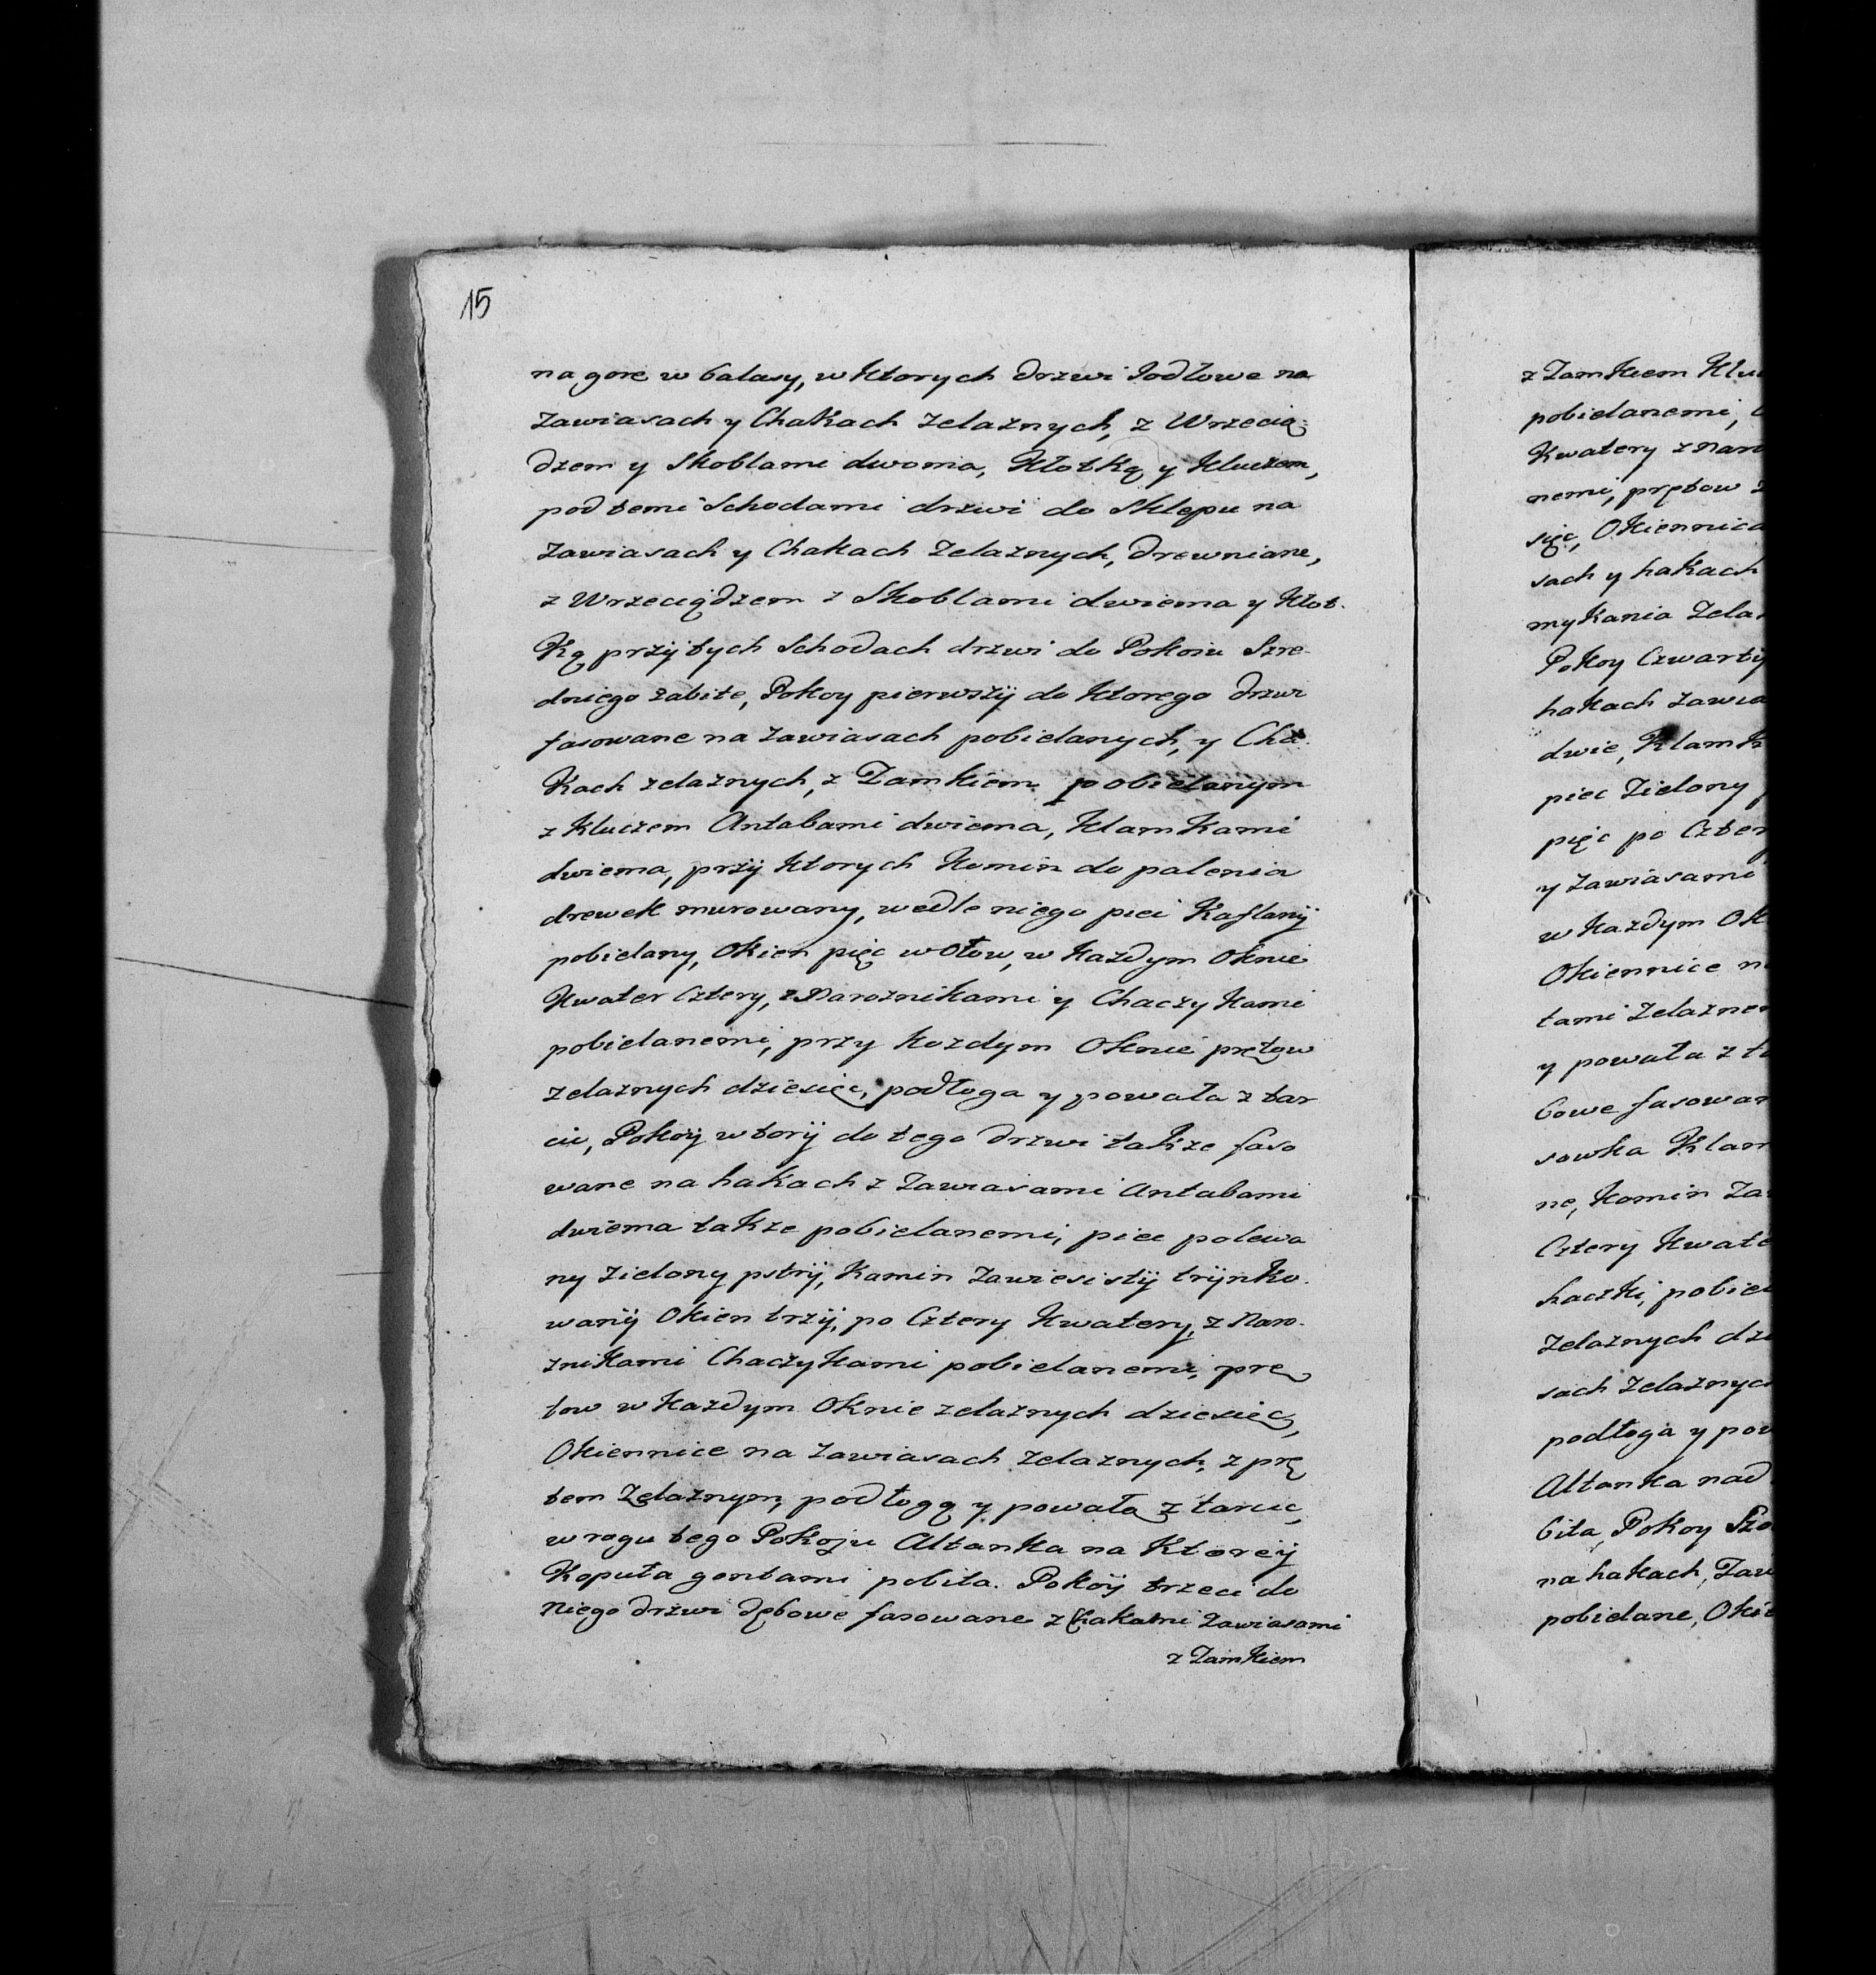 15
na gore w balasy, w Ktorych drzwi Jodłowe na
Zawiasach y Chakach Zelaznych, z Wrzecią-
dzem y Skoblami dwoma, Kłotką y Kluczem,
pod temi Schodami drzwi do Sklepu na
Zawiasach y Chakach Zelaznych, drewniane,
z Wrzeciądzem z Skoblami dwiema y Kłot-
Ką przy tych Schodach drzwi do Pokoiu Szre-
dniego zabite, Pokoy pierwszÿ do Ktorego drzwi
fasowane na Zawiasach pobielanych, y Cha-
Kach zelaznych, z Zamkiem pobielanym
z Kluczem Antabami dwiema, Klamkami
dwiema, przÿ Ktorych Komin do palenia
drewek murowany, wedle niego piec Kaflanÿ
pobielany, Okien pięc w Ołow, w Kazdym Oknie
Kwater Cztery, z Naroznikami y Chaczykami
pobielanemi, przy Kozdym Oknie prętow
zelaznych dziesięc, podłoga y powała z tar
cic, Pokoÿ wtorÿ do tego drzwi takze faso
wane na hakach z Zawiasami Antabami
dwiema takze pobielanemi, piec polewa
ny Zielony pstrÿ, Kamin Zawiesistÿ trÿnko-
wanÿ Okien trzÿ, po Cztery Kwatery, z Naro-
znikami Chaczykami pobielanemi, prę
tow w Kazdym Oknie zelaznych dziesięc,
Okiennice na Zawiasach Zelaznych, z prę
tem Zelaznym, podłogą y powała z tarcic,
w rogu tego Pokoju Altanka na Ktoreÿ
Kopuła gontami pobita. Pokoÿ trzeci do
Niego drzwi dębowe fasowane z hakami Zawiasami
z Zamkiem
z Zamkiem Klu
pobielanemi,
Kwatery z Naro
nemi, prętow
sięc, Okiennica
sach y hakach
mykania Zela
Pokoy Czwartÿ
hakach Zawia
dwie, Klamk
piec Zielony
pięc po Czter
y Zawiasami
w Kazdym Ok
Okiennice n
tami Zelazne
y powała z t
bowe fasowan
sowka Klam
ne, Komin Za
Cztery Kwate
haczki, pobie
Zelaznych dz
sach Zelaznyc
podłoga y pow
Altanka nad
bita, Pokoy Szo
na hakach, Zaw
pobielane, Oki